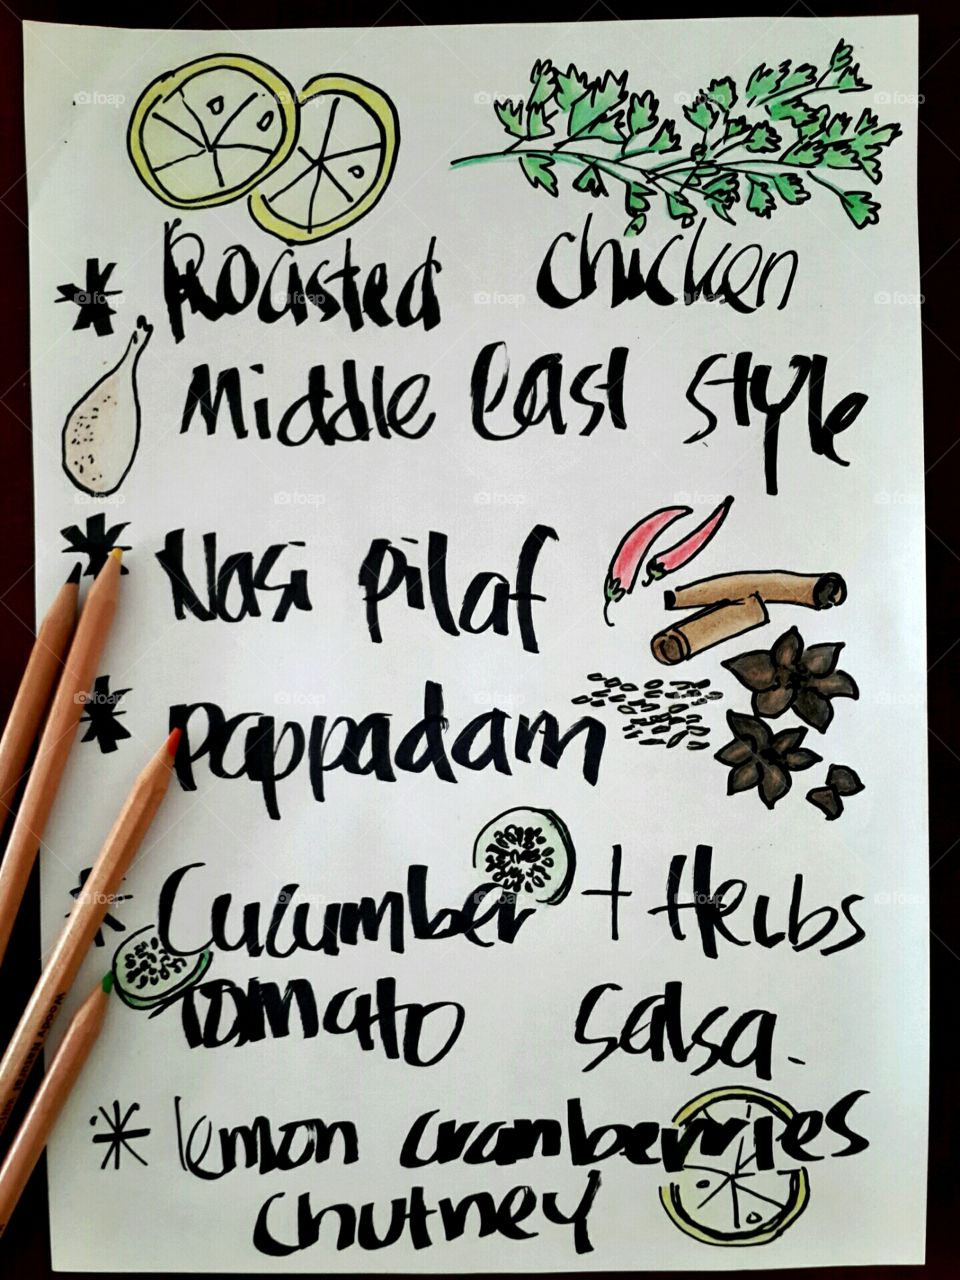 * Roasted chicken
Middle East style
* Nasi Pilaf
* Pappadam
* Cucumber + Herbs
Tomato Salsa.
* lemon cranberries
chutney